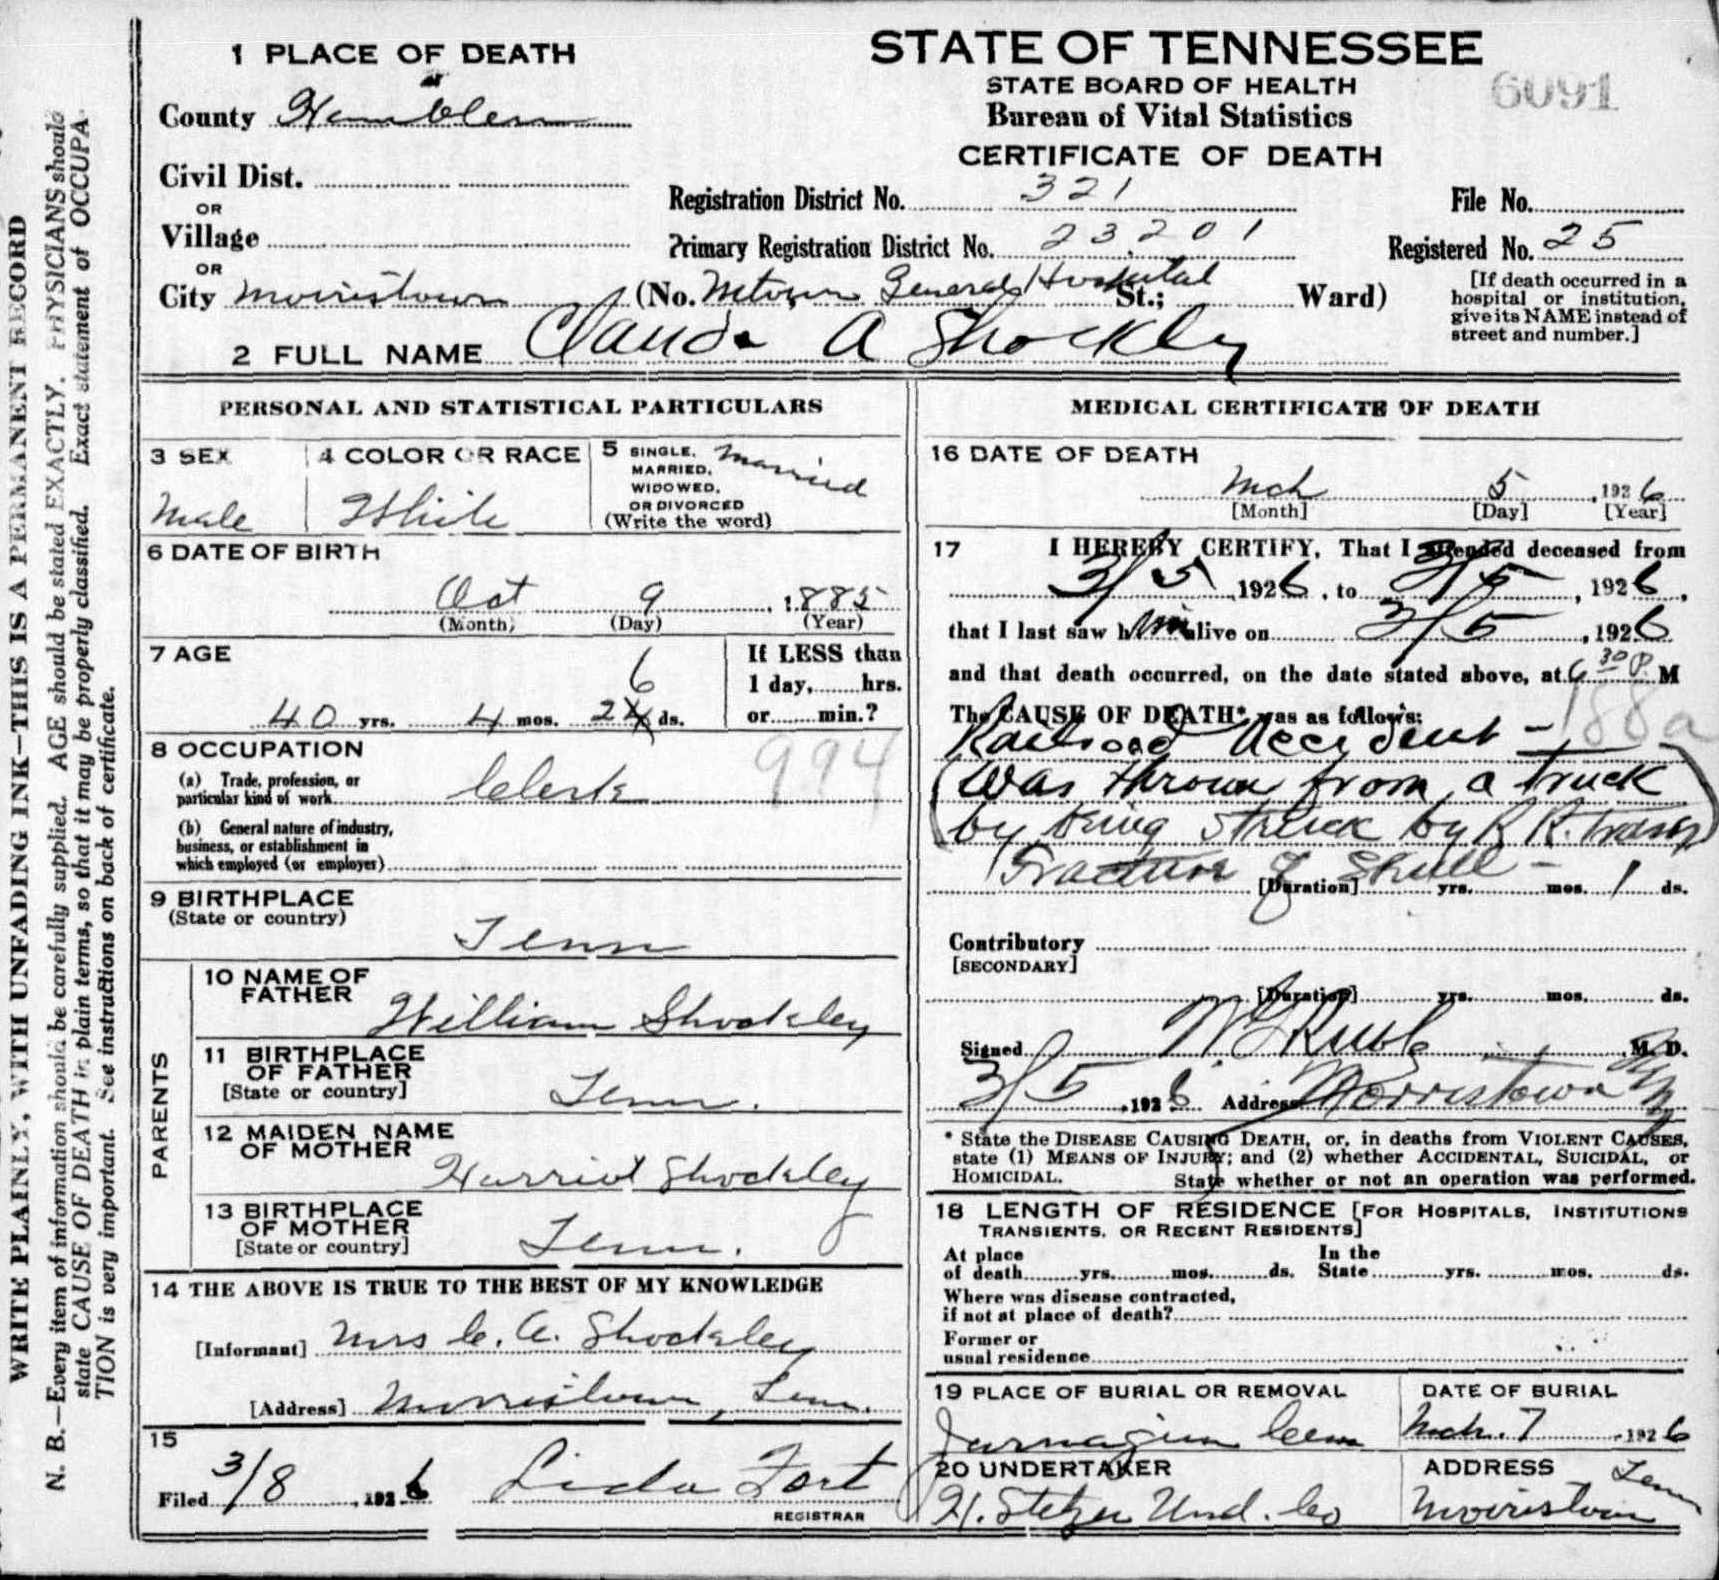 WRITE PLAINLY, WITH UNFADING INK—THIS IS A PERMANENT RECORD
N. B.—Every item of information should be carefully supplied. AGE should be stated EXACTLY. PHYSICIANS should
state CAUSE OF DEATH in plain terms, so that it may be properly classified. Exact statement of OCCUPA-
TION is very important. See instructions on back of certificate.
1 PLACE OF DEATH
County Hamblen
Civil Dist.
OR
Village
OR
City Morristown (No. Mtown General Hospital St.; Ward)
STATE OF TENNESSEE
STATE BOARD OF HEALTH
Bureau of Vital Statistics
CERTIFICATE OF DEATH
6091
Registration District No. 321
File No.
Primary Registration District No. 23201
Registered No. 25
[If death occurred in a
hospital or institution,
give its NAME instead of
street and number.]
2 FULL NAME Claude A Shockley
PERSONAL AND STATISTICAL PARTICULARS
3 SEX
Male
4 COLOR OR RACE
White
5 SINGLE,
MARRIED,
WIDOWED,
OR DIVORCED
(Write the word)
Married
6 DATE OF BIRTH
Oct 9, 1885
(Month) (Day) (Year)
7 AGE
6
40 yrs. 4 mos. 24 ds.
If LESS than
1 day, hrs.
or min.?
8 OCCUPATION
(a) Trade, profession, or
particular kind of work Clerk
994
(b) General nature of industry,
business, or establishment in
which employed (or employer)
9 BIRTHPLACE
(State or country)
Tenn
PARENTS
10 NAME OF
FATHER
William Shockley
11 BIRTHPLACE
OF FATHER
[State or country]
Tenn.
12 MAIDEN NAME
OF MOTHER
Harriet Shockley
13 BIRTHPLACE
OF MOTHER
[State or country]
Tenn.
14 THE ABOVE IS TRUE TO THE BEST OF MY KNOWLEDGE
[Informant] Mrs C. A. Shockley
[Address] Morristown, Tenn.
15
Filed 3/8, 1926 Lida Fort
REGISTRAR
MEDICAL CERTIFICATE OF DEATH
16 DATE OF DEATH
Mch 5, 1926
[Month] [Day] [Year]
17 I HEREBY CERTIFY, That I attended deceased from
3/5, 1926, to 3/5, 1926,
that I last saw him alive on 3/5, 1926
and that death occurred, on the date stated above, at 6 30 P. M
The CAUSE OF DEATH* was as follows:
188a
Railroad Accident -
(Was thrown from a truck
by being struck by R R. Train)
Fracture of Skull -
[Duration] yrs. mos. 1 ds.
Contributory
[SECONDARY]
[Duration] yrs. mos. ds.
Signed M. D.
3/5, 1926 Address Morristown Tenn
* State the DISEASE CAUSING DEATH, or, in deaths from VIOLENT CAUSES,
state (1) MEANS OF INJURY; and (2) whether ACCIDENTAL, SUICIDAL, or
HOMICIDAL. State whether or not an operation was performed.
18 LENGTH OF RESIDENCE [FOR HOSPITALS, INSTITUTIONS
TRANSIENTS, OR RECENT RESIDENTS]
At place
of death yrs. mos. ds.
In the
State yrs. mos. ds.
Where was disease contracted,
if not at place of death?
Former or
usual residence
19 PLACE OF BURIAL OR REMOVAL
Jarnagin Cem
DATE OF BURIAL
Mch. 7, 1926
20 UNDERTAKER
H. Stetzer Und. Co
ADDRESS Tenn
Morristown